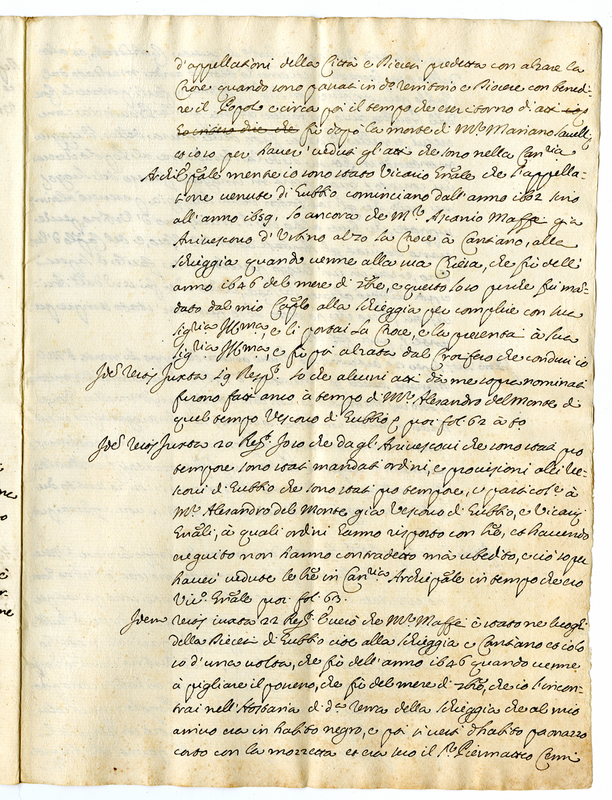 d'appellationi della Città e Diocesi predetta con alzare la
Croce quando sono passati in do Territorio e Diocese con benedi-
re il Popolo e circa poi il tempo che esercitorno di atti
fù dopo la morte di Mr Mariano Savelli
et io so per haver veduti gli atti che sono nella Canria
Archiepale mentre io sono stato Vicario Gñale che l'appella-
tione venute di Eubbio cominciano dall'anno 1602 sino
all'anno 1659. So ancora che Mr Ascanio Maffei già
Arcivescovo d'Urbino alzò la Croce à Cantiano, alla
Schieggia quando venne alla sua Chiesa, che fù dell'
anno 1646 del mese di 7bre, e questo lo so perche fui man-
dato dal mio Caplo alla Schieggia per complire con Sua
Sigria Illma, e li portai la Croce, e la presentai à Sua
Sigria Illma, e fù poi alzata dal Crocifero che condusse
Idem testis iuxta 19 Respt. So che alcuni atti da me sopra nominati
furono fatti anco à tempo di Mr Alesandro del Monte di
quel tempo Vescovo di Eubbio p. put fol. 62 à to
Idem testis iuxta 20 Respt Io so che da gl'Arcivescovi che sono stati pro
tempore sono stati mandati ordini, e provisioni alli Ve-
scovi di Eubbio che sono stati pro tempore, e particole à
Mr Alesandro del Monte già Vescovo di Eubbio, e Vicarij
Gñali, à quali ordini hanno risposto con lre, et havendo
eseguito non hanno contradetto mà ubedito, e ciò so per
haver vedute le lre in Canria Archiepale in tempo che ero
Vico Gñale put fol. 63.
Idem testis iuxta 22 Respt. È vero che Mr Maffei è stato ne luoghi
della Diocesi di Eubbio cioè alla Schieggia e Cantiano et io lo
so d'una volta, che fù dell'anno 1646 quando venne
à pigliare il possesso, che fù del mese di 7bre, che io l'incon-
trai nell'Hostaria di da Terra della Schieggia che al mio
arrivo era in habito negro, e poi si vestì d'habito paonazzo
corto con la mozzetta et era seco il Sr Piermatteo Cenni